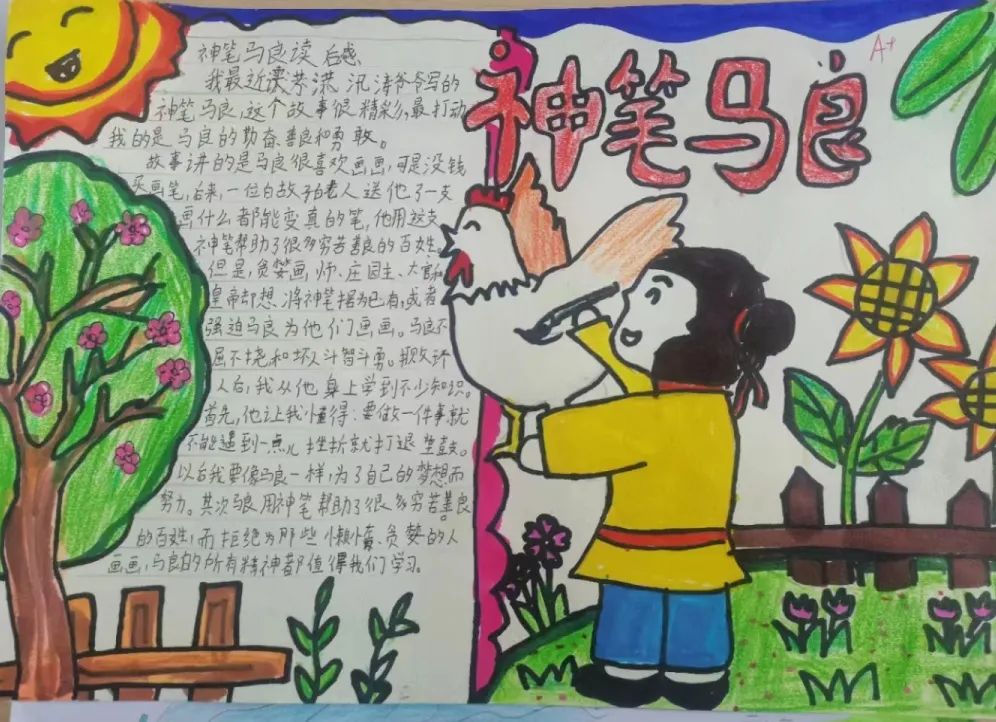 神笔马良
A+
神笔马良读后感
我最近读洪汛涛爷爷写的
神笔马良,这个故事很精彩,最打动
我的是马良的勤奋善良和勇敢。
故事讲的是马良很喜欢画画,可是没钱
买画笔,后来,一位白胡子老人送他了一支
画什么都能变真的笔,他用这支
神笔帮助了很多穷苦善良的百姓。
但是,贪婪画师、庄园主、大官和
皇帝却想将神笔据为已有,或者
强迫马良为他们画画。马良不
屈不挠和坏人斗智斗勇。
人后,我从他身上学到不少知识。
首先,他让我懂得:要做一件事就
不能遇到一点儿挫折就打退堂鼓。
以后我要像马良一样,为了自己的梦想而
努力。其次马良用神笔帮助了很多穷苦善良
的百姓,而拒绝为那些懒惰、贪婪的人
画画,马良的所有精神都值得我们学习。